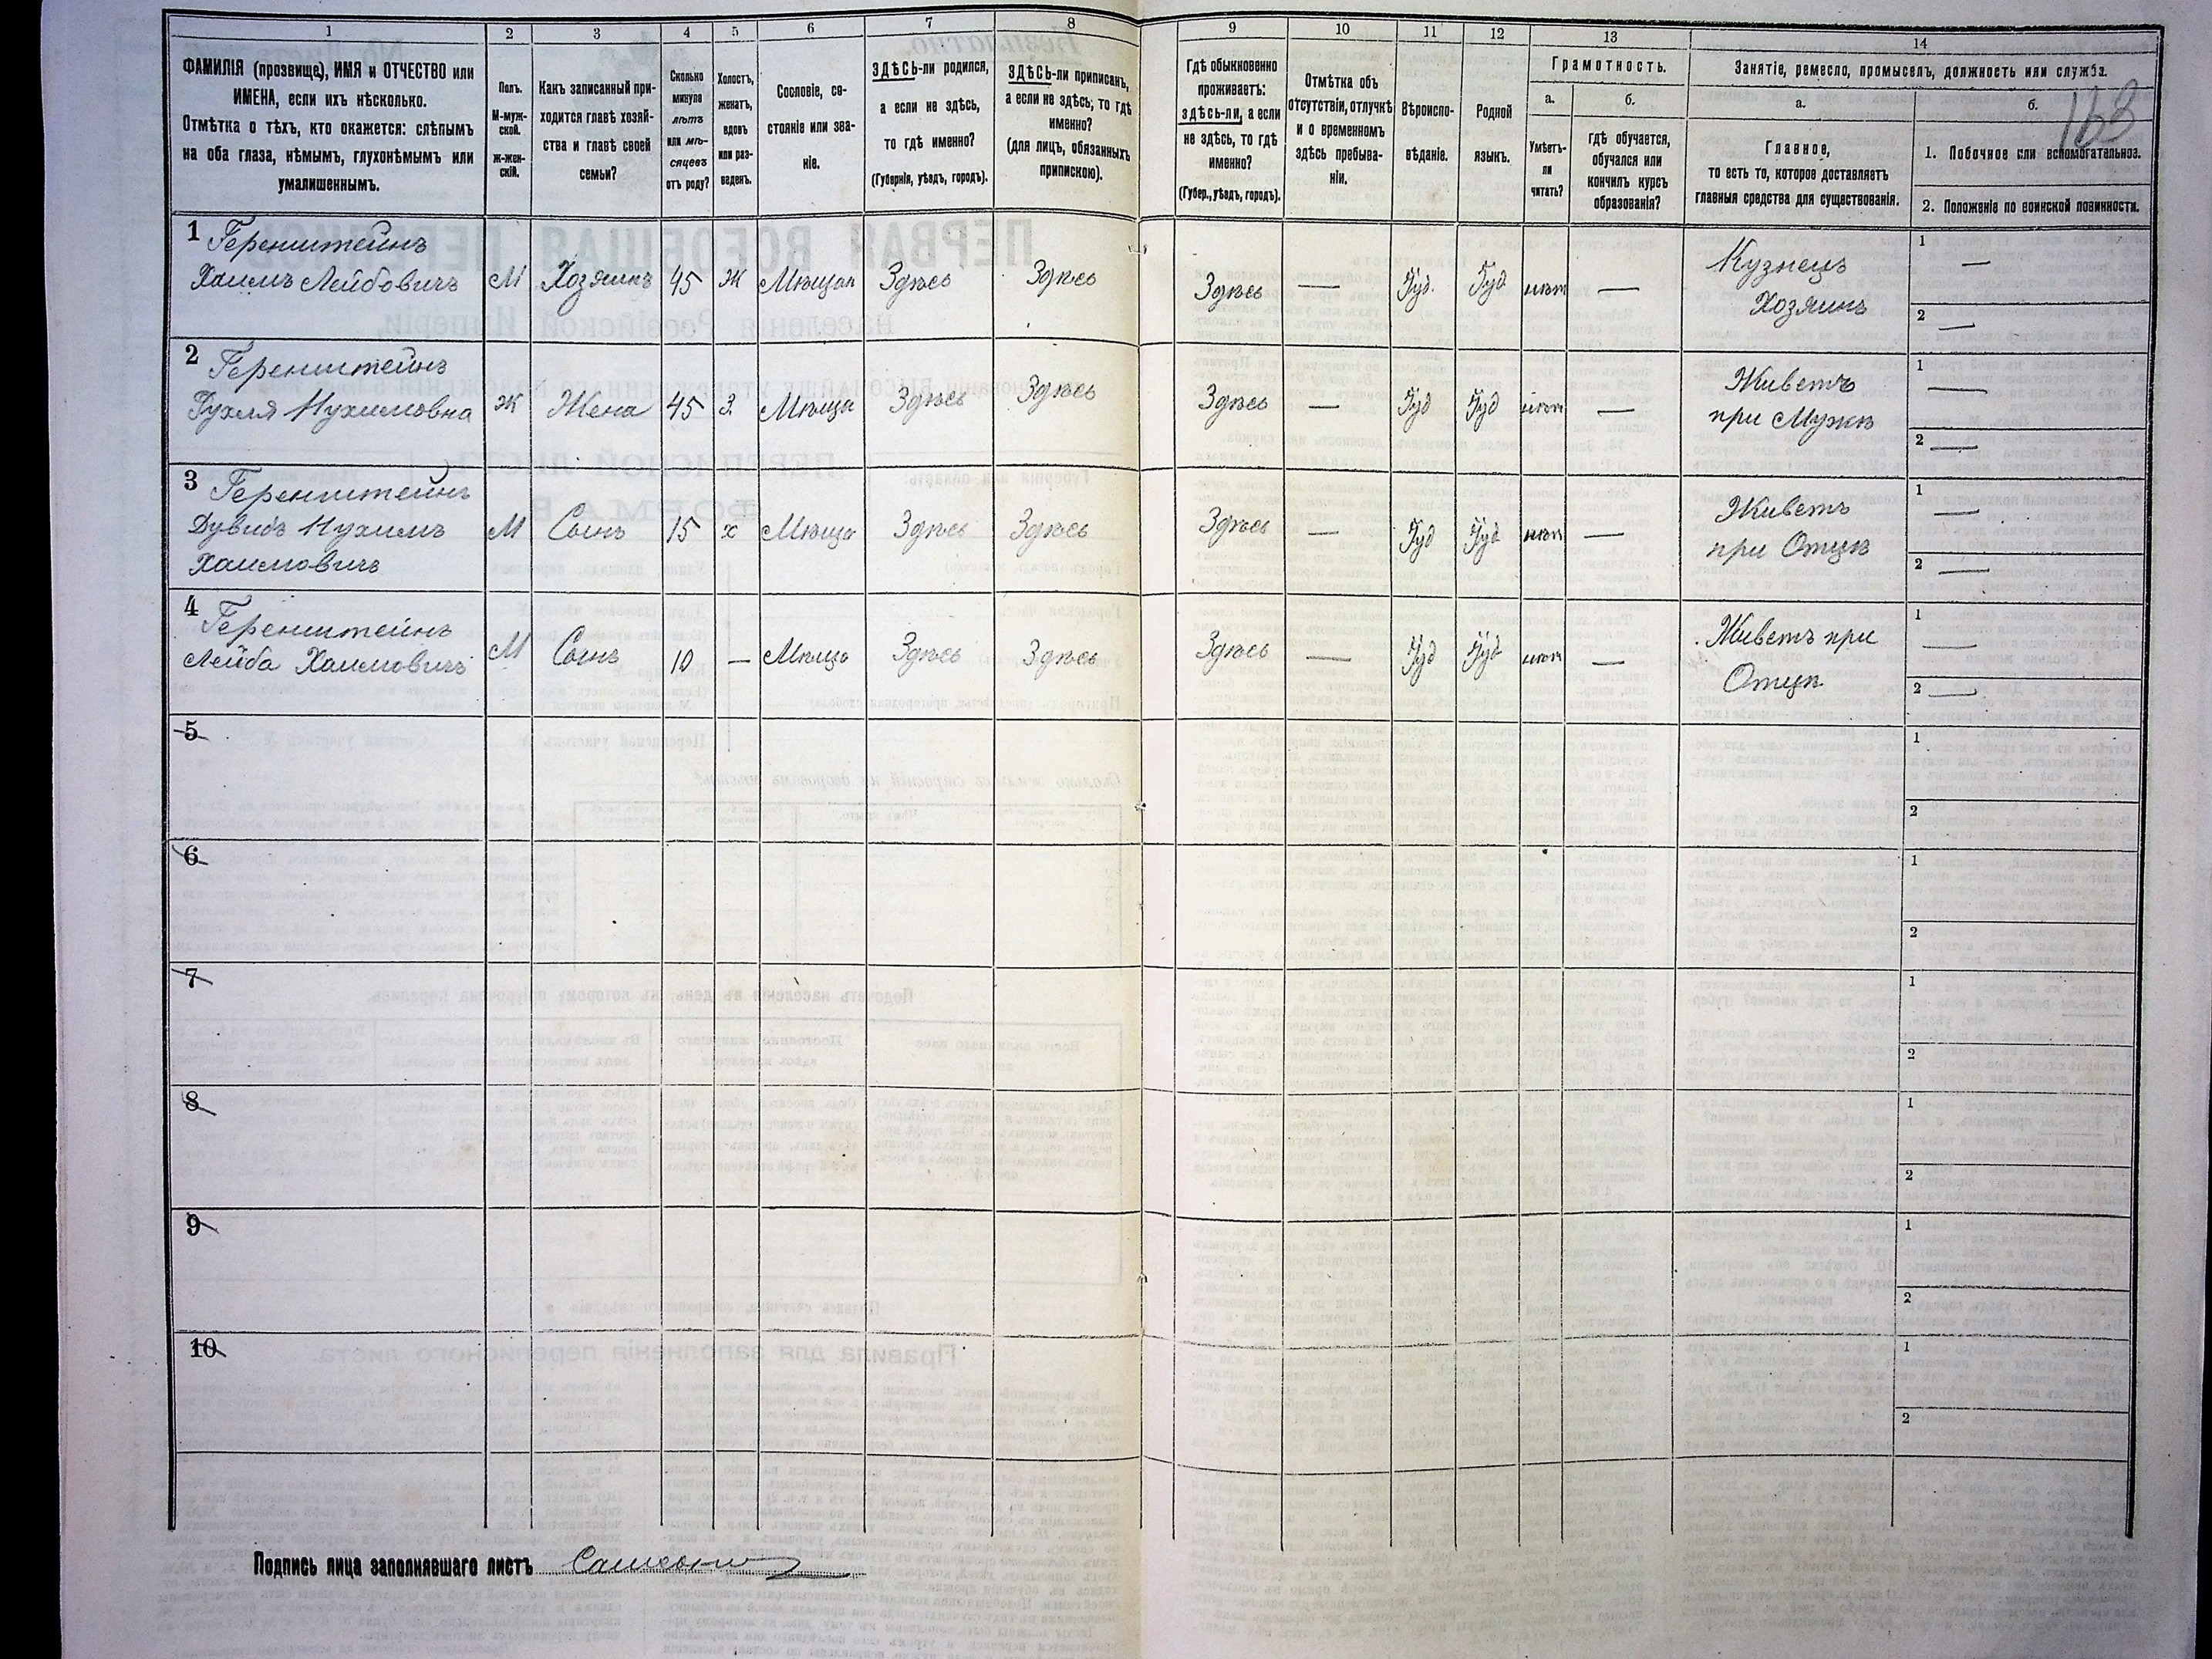 1 2 3 4 5 6 7 8 9 10 11 12 13 14
ФАМИЛІЯ (прозвище), ИМЯ и ОТЧЕСТВО или
ИМЕНА, если ихъ нѣсколько.
Отмѣтка о тѣхъ, кто окажется: слѣпымъ
на оба глаза, нѣмымъ, глухонѣмымъ или
умалишеннымъ.
Полъ.
М-муж-
ской.
Ж-жен-
скій.
Какъ записанный при-
ходится главѣ хозяй-
ства и главѣ своей
семьи?
Сколько
минуло
лѣтъ
или мѣ-
сяцевъ
отъ роду?
Холостъ,
женатъ,
вдовъ
или раз-
веденъ.
Сословіе, со-
стояніе или зва-
ніе.
ЗДѢСЬ-ли родился,
а если не здѣсь,
то гдѣ именно?
(Губернія, уѣздъ, городъ).
ЗДѢСЬ-ли приписанъ,
а если не здѣсь, то гдѣ
именно?
(для лицъ, обязанныхъ
припискою).
Гдѣ обыкновенно
проживаетъ:
здѣсь-ли, а если
не здѣсь, то гдѣ
именно?
(Губер., уѣздъ, городъ).
Отмѣтка объ
отсутствіи, отлучкѣ
и о временномъ
здѣсь пребыва-
ніи.
Вѣроиспо-
вѣданіе.
Родной
языкъ.
Грамотность.
а.
Умѣетъ-
ли
читать?
б.
гдѣ обучается,
обучался или
кончилъ курсъ
образованія?
Занятіе, ремесло, промыселъ, должность или служба.
а.
Главное,
то есть то, которое доставляетъ
главныя средства для существованія.
б.
163
1. Побочное или вспомогательное.
2. Положеніе по воинской повинности.
1 Геренштейнъ
Хаимъ Лейбовичъ М Хозяинъ 45 Ж Мѣщан Здѣсь Здѣсь Здѣсь — Іуд. Іуд нѣт —
Кузнецъ
Хозяинъ
1 —
2 —
2 Геренштейнъ
Рухля Нухимовна Ж Жена 45 З. Мѣща Здѣсь Здѣсь Здѣсь — Іуд Іуд нѣт —
Живетъ
при Мужѣ
1 —
2 —
3 Геренштейнъ
Дувидъ Нухимъ М Сынъ 15 х Мѣща Здѣсь Здѣсь Здѣсь — Іуд Іуд нѣт —
Хаимовичъ
Живетъ
при Отцѣ
1 —
2 —
4 Геренштейнъ
Лейба Хаимовичъ М Сынъ 10 — Мѣща Здѣсь Здѣсь Здѣсь — Іуд Іуд нѣт —
Живетъ при
Отцѣ
1 —
2 —
5
1
2
6
1
2
7
1
2
8
1
2
9
1
2
10
1
2
Подпись лица заполнявшаго листъ